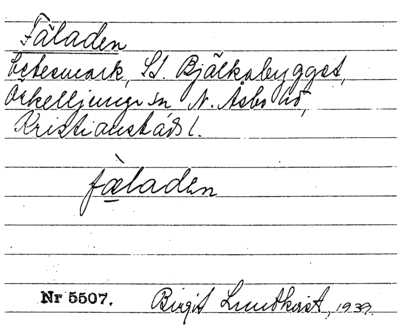 Fäladen
betesmark, St. Bjälkabygget,
Örkelljunga sn N. Åsbo hd,
Kristianstads l.
fàladen
Nr 5507. Birgit Lundkvist, 1939.